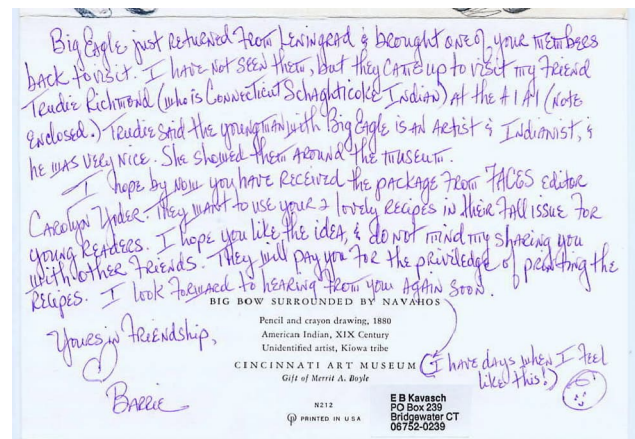 Big Eagle just returned from Leningrad & brought one of your members
back to visit. I have not seen them, but they came up to visit my friend
Trudie Richmond (who is Connecticut Schaghticoke Indian) at the AIAI (note
enclosed.) Trudie said the young man with Big Eagle is an artist & Indianist, &
he was very nice. She showed them around the museum.
I hope by now you have received the package from FACES editor
Carolyn Yoder. They want to use your 2 lovely recipes in their Fall issue for
young readers. I hope you like the idea, & do not mind my sharing you
with other friends. They will pay you for the priviledge of printing the
recipes. I look forward to hearing from you again soon.
BIG BOW SURROUNDED BY NAVAHOS
Pencil and crayon drawing, 1880
American Indian, XIX Century
Unidentified artist, Kiowa tribe
CINCINNATI ART MUSEUM
Gift of Merrit A. Boyle
Yours in Friendship,
Barrie
(I have days when I feel
like this!)
N212
PRINTED IN USA
E B Kavasch
PO Box 239
Bridgewater CT
06752-0239